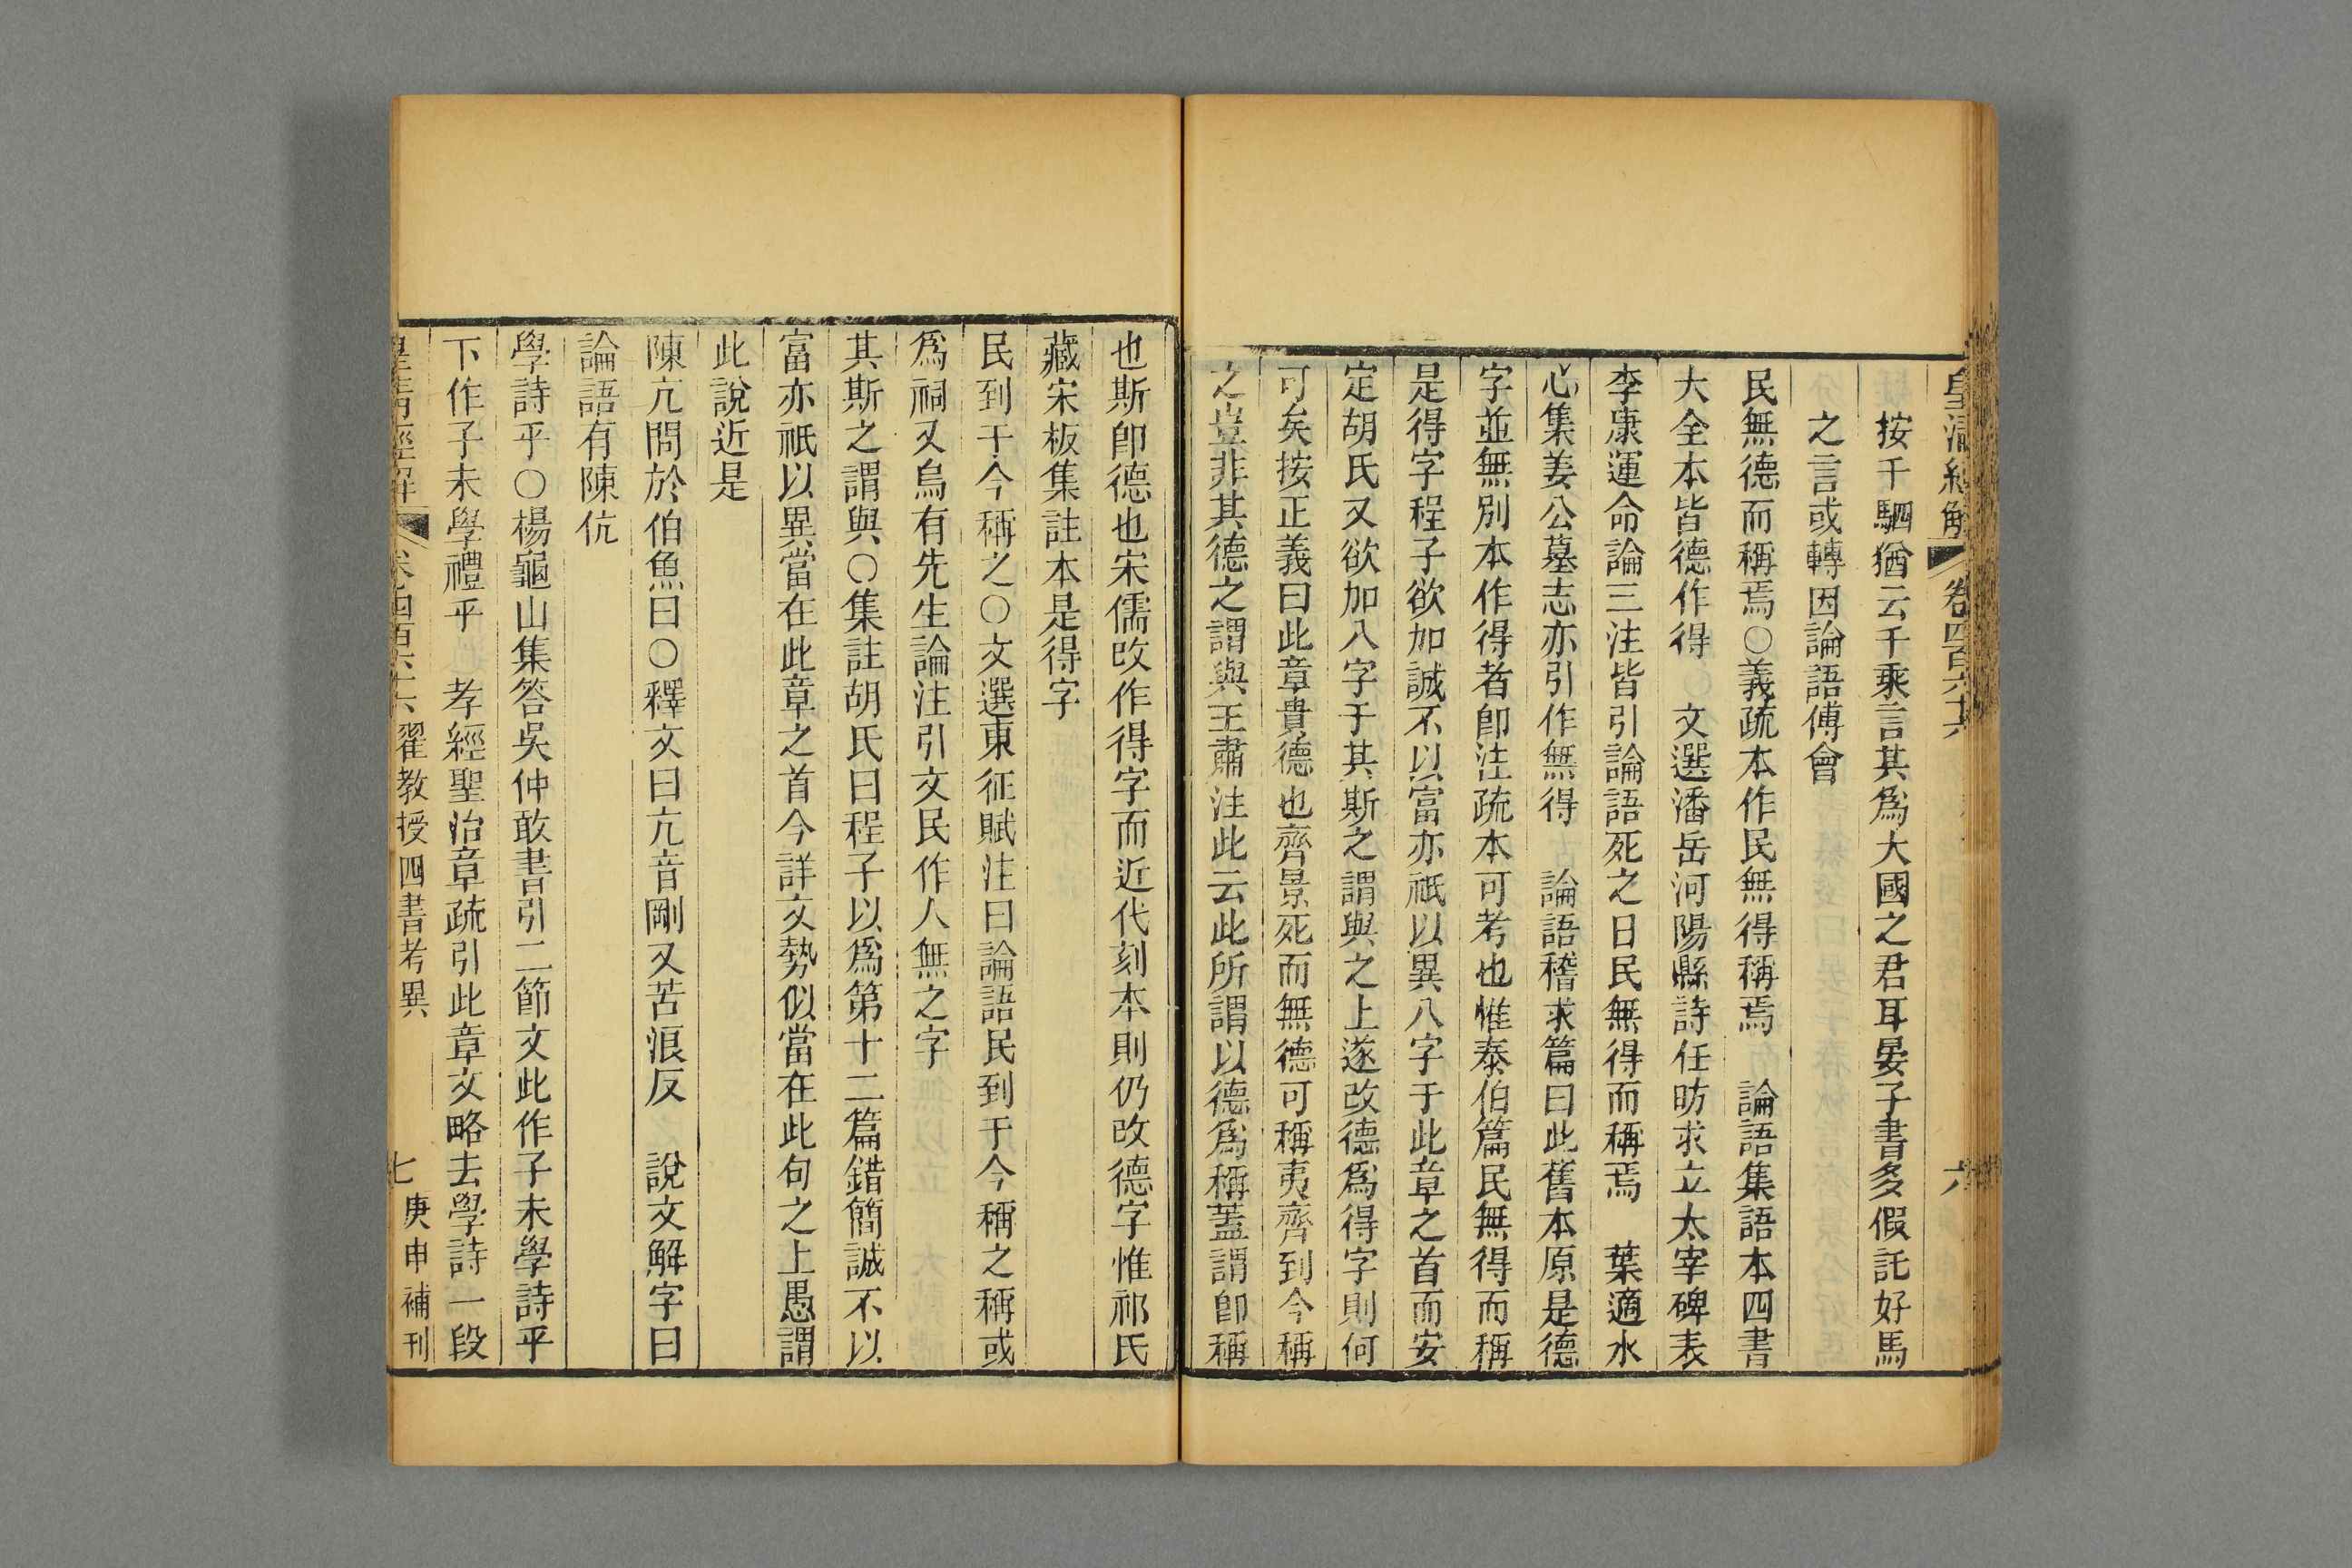 皇清經解 卷四百六十六 六
按千駟猶云千乘言其爲大國之君耳晏子書多假託好馬
之言或轉因論語傅會
民無德而稱焉○義疏本作民無得稱焉 論語集語本四書
大全本皆德作得 文選潘岳河陽縣詩任昉求立太宰碑表
李康運命論三注皆引論語死之日民無得而稱焉 葉適水
心集姜公墓志亦引作無得 論語稽求篇曰此舊本原是德
字並無別本作得者卽注疏本可考也惟泰伯篇民無得而稱
是得字程子欲加誠不以富亦祇以異八字于此章之首而安
定胡氏又欲加八字于其斯之謂與之上遂改德爲得字則何
可矣按正義曰此章貴德也齊景死而無德可稱夷齊到今稱
之豈非其德之謂與王肅注此云此所謂以德爲稱蓋謂卽稱
也斯卽德也宋儒改作得字而近代刻本則仍改德字惟祁氏
藏宋板集註本是得字
民到于今稱之○文選東征賦注曰論語民到于今稱之稱或
爲祠又烏有先生論注引文民作人無之字
其斯之謂與○集註胡氏曰程子以爲第十二篇錯簡誠不以
富亦祇以異當在此章之首今詳文勢似當在此句之上愚謂
此說近是
陳亢問於伯魚曰○釋文曰亢音剛又苦浪反 說文解字曰
論語有陳伉
學詩乎○楊龜山集答吳仲敢書引二節文此作子未學詩乎
下作子未學禮乎 孝經聖治章疏引此章文略去學詩一段
皇清經解 卷四百六十六 翟教授四書考異 七 庚申補刊